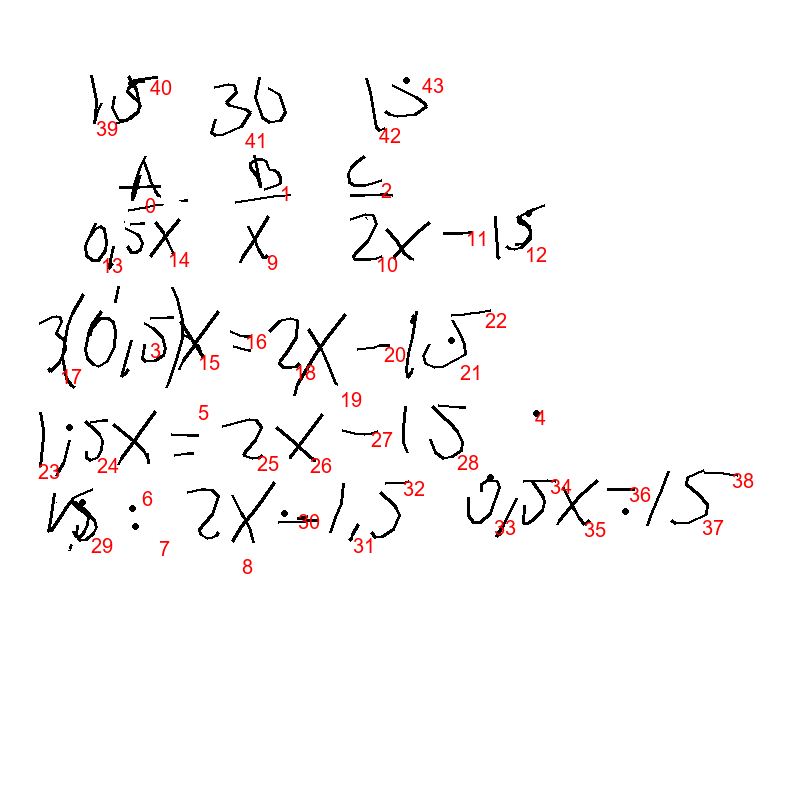 15 40 30 15 43
39 41 42
A B C
0 1 2
0,5x x 2x - 15
13 14 9 10 11 12
3(0,5)x = 2x - 15 22
17 3 15 16 18 19 20 21
1,5x = 2x - 15 4
23 24 5 25 26 27 28
15 : 2x - 1,5 32 0,5x = 15 38
29 6 7 8 30 31 33 34 35 36 37